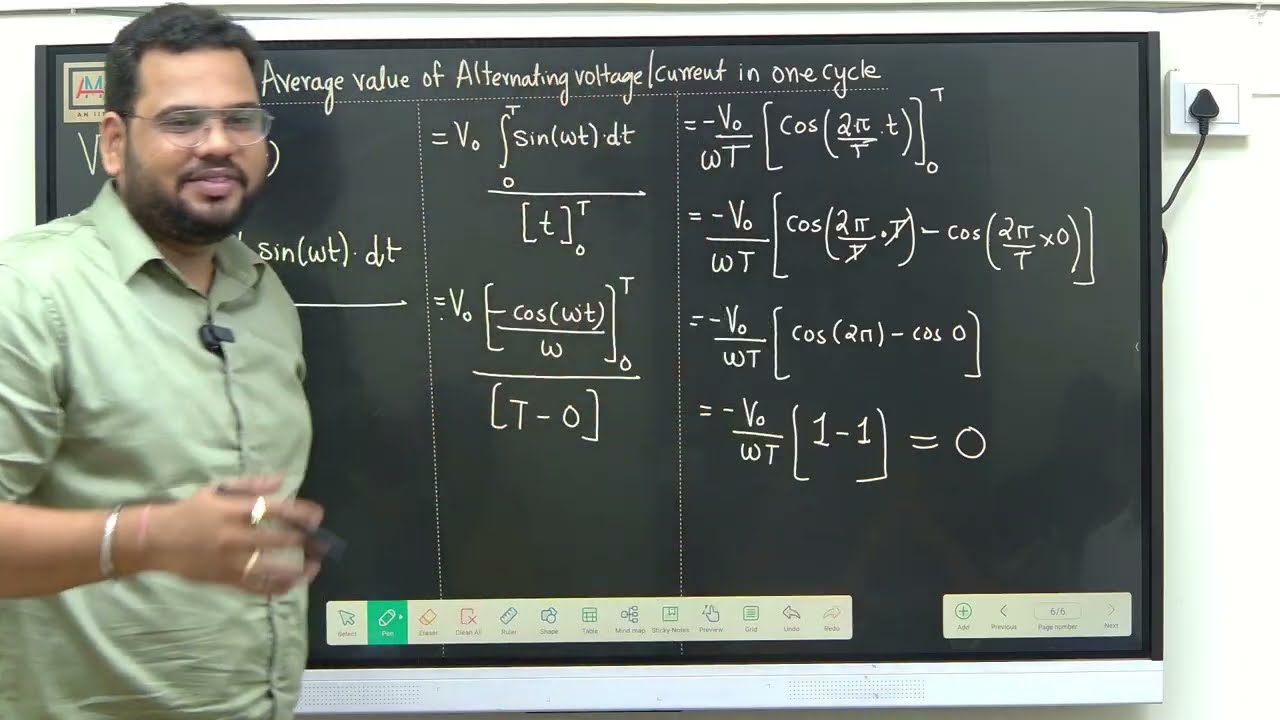 Average value of Alternating voltage/current in one cycle
AM
AN II
V )
sin(ωt)·dt
= V₀ ∫₀ᵀ sin(ωt)·dt
[t]₀ᵀ
= V₀ [- cos(ωt) / ω]₀ᵀ
[T - 0]
= -V₀/ωT [cos(2π/T · t)]₀ᵀ
= -V₀/ωT [cos(2π/T · T) - cos(2π/T × 0)]
= -V₀/ωT [cos(2π) - cos 0]
= -V₀/ωT [1 - 1] = 0
Select Pen Eraser Clean All Ruler Shape Table Mind map Sticky Notes Preview Grid Undo Redo
Add Previous 6/6 Page number Next